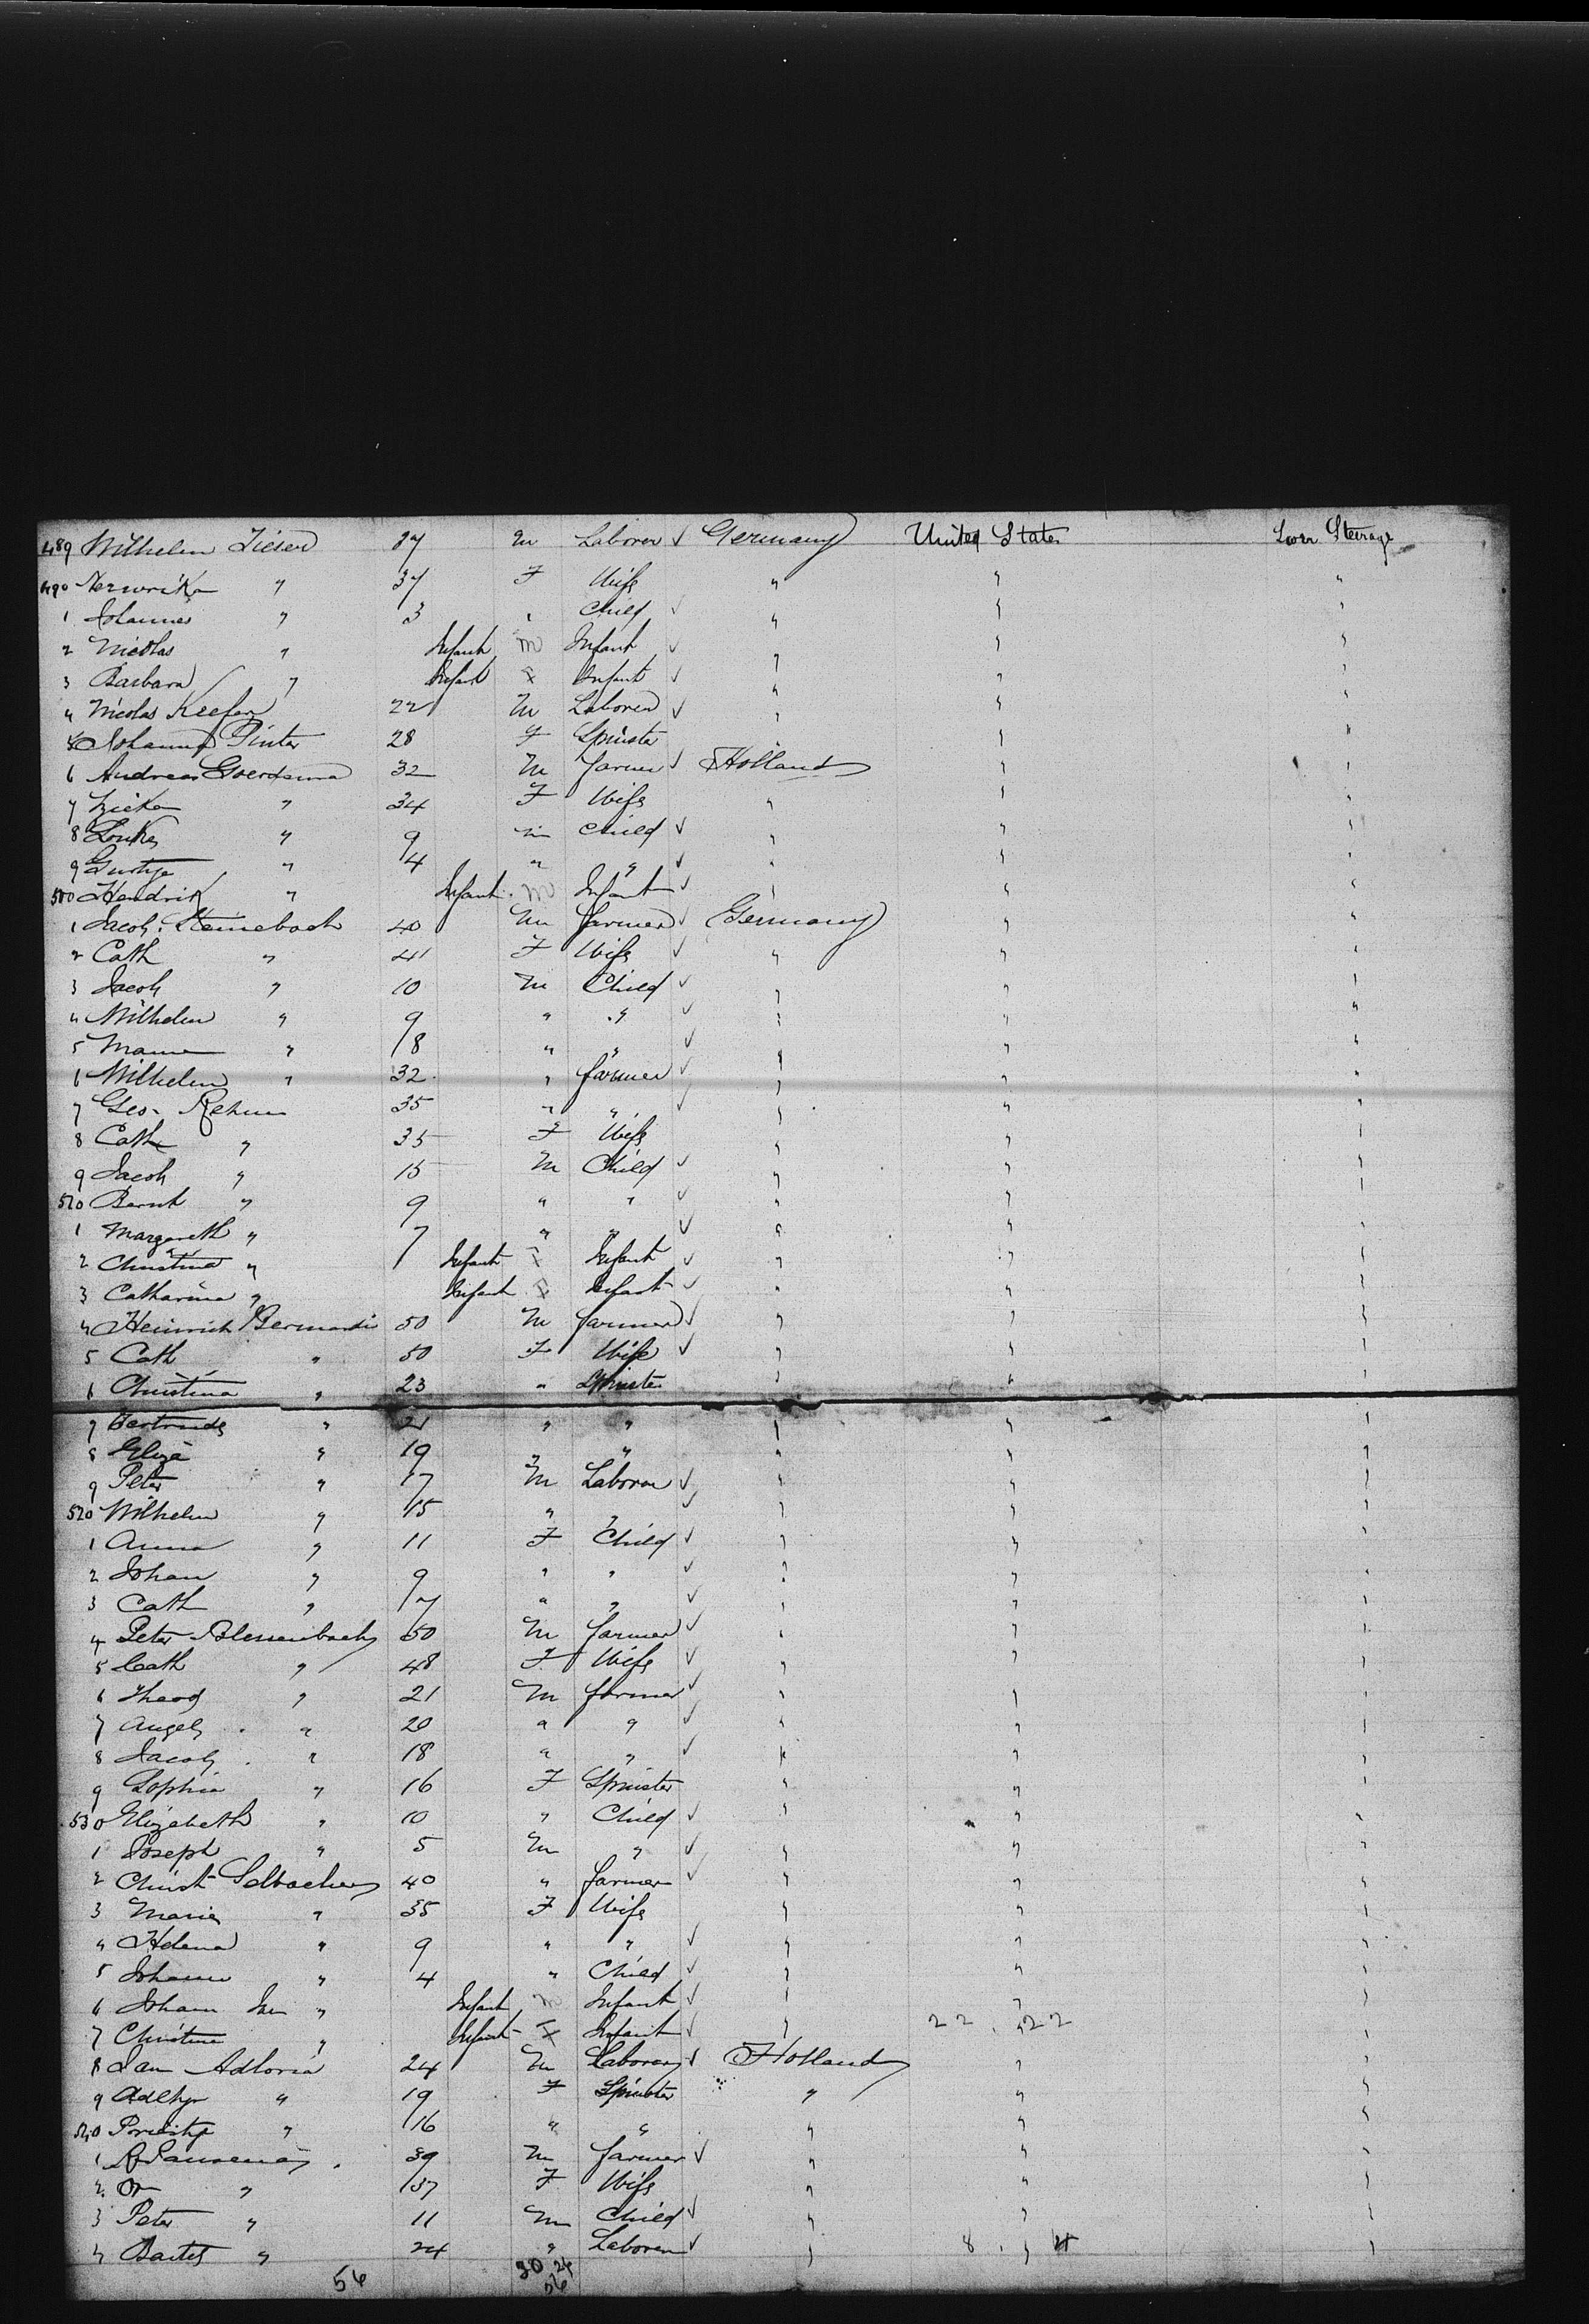 489 Wilhelm Tiesen 37 M Laborer ✓ Germany United States Lower Steerage
490 " 37 F Wife " " "
1 Johannes " 3 " Child ✓ " " "
2 Nicolas " Infant M Infant ✓ " " "
3 Barbara " Infant F Infant ✓ " " "
4 Nicolas Keefer 22 M Laborer ✓ " " "
Johanna Pinter 28 F Spinster " " "
6 Andreas Goerdsma 32 M farmer ✓ Holland " "
7 " 34 F Wife " " "
8 " 9 m Child ✓ " " "
9 " 4 " " ✓ " " "
500 Hendrik " Infant M Infant ✓ " " "
1 Jacob Steinebach 40 M farmer ✓ Germany " "
2 Cath " 41 F Wife ✓ " " "
3 Jacob " 10 M Child ✓ " " "
4 Wilhelm " 9 " " ✓ " " "
5 " 8 " " ✓ " " "
6 Wilhelm " 32 " farmer ✓ " " "
7 Geo. Rehm 35 " " ✓ " " "
8 Cath " 35 F Wife " " "
9 Jacob " 15 M Child ✓ " " "
510 Bernh " 9 " " ✓ " " "
1 Margareth " 7 " " ✓ " " "
2 Christina " Infant F Infant ✓ " " "
3 Catharina " Infant F Infant ✓ " " "
4 Heinrich Bermardi 50 M farmer ✓ " " "
5 Cath " 50 F Wife ✓ " " "
6 Christina " 23 " Spinster " " "
7 Gertrude " 21 " " " " "
8 Eliza " 19 " " " " "
9 Peter " 17 M Laborer ✓ " " "
520 Wilhelm " 15 " " ✓ " " "
1 Anna " 11 F Child ✓ " " "
2 Johan " 9 " " ✓ " " "
3 Cath " 7 " " ✓ " " "
4 Peter Blessenbach 50 M farmer ✓ " " "
5 Cath " 48 F Wife ✓ " " "
6 Theod " 21 M farmer ✓ " " "
7 Angel " 20 " " ✓ " " "
8 Jacob " 18 " " ✓ " " "
9 Sophia " 16 F Spinster " " "
530 Elizabeth " 10 " Child ✓ " " "
1 Joseph " 5 M " ✓ " " "
2 Christ Selbacher 40 " farmer ✓ " " "
3 Marie " 35 F Wife " " "
4 Helena " 9 " " ✓ " " "
5 Johann " 4 " Child ✓ " " "
6 Johann " Infant M Infant ✓ " " "
7 Christine " Infant F Infant ✓ " 22 . " 22 "
8 Jan Adloria 24 M Laborer ✓ Holland " "
9 " 19 F Spinster " " "
540 " 16 " " " " "
1 39 M farmer ✓ " " "
2 " 37 F Wife " " "
3 Peter " 11 M Child ✓ " " "
4 Bartel " 24 " Laborer ✓ " 8 . " 4 "
56 30 26
56